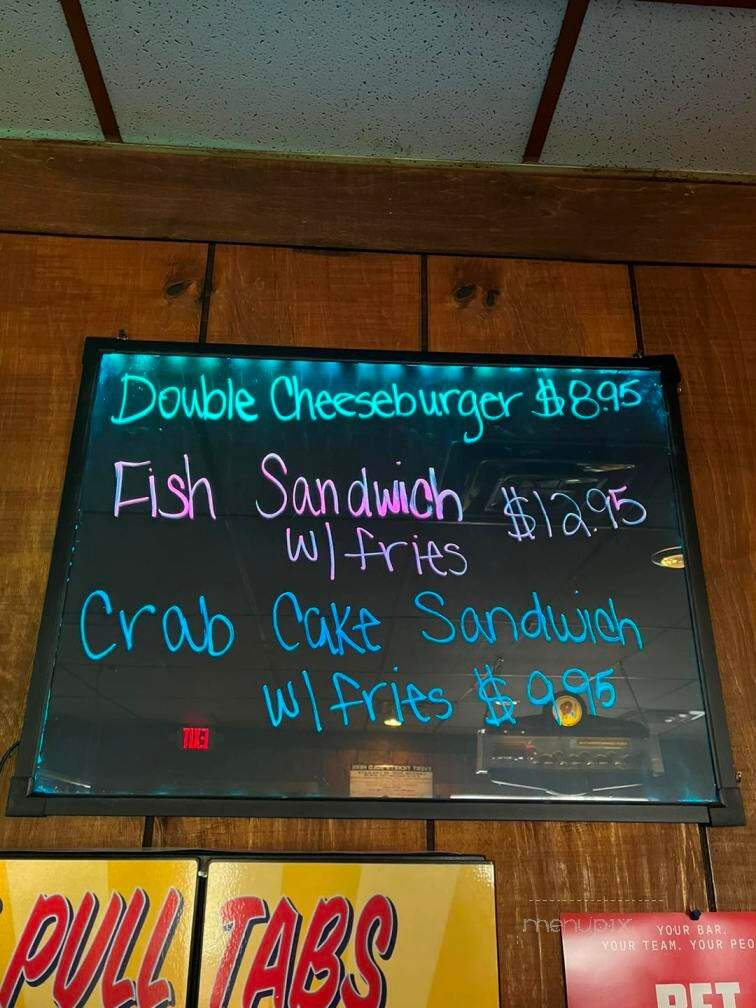 Double Cheeseburger $8.95
Fish Sandwich $12.95
w/ fries
Crab Cake Sandwich
w/ fries $9.95
EXIT
PULL TABS
menupix
YOUR BAR.
YOUR TEAM. YOUR PEO
BET